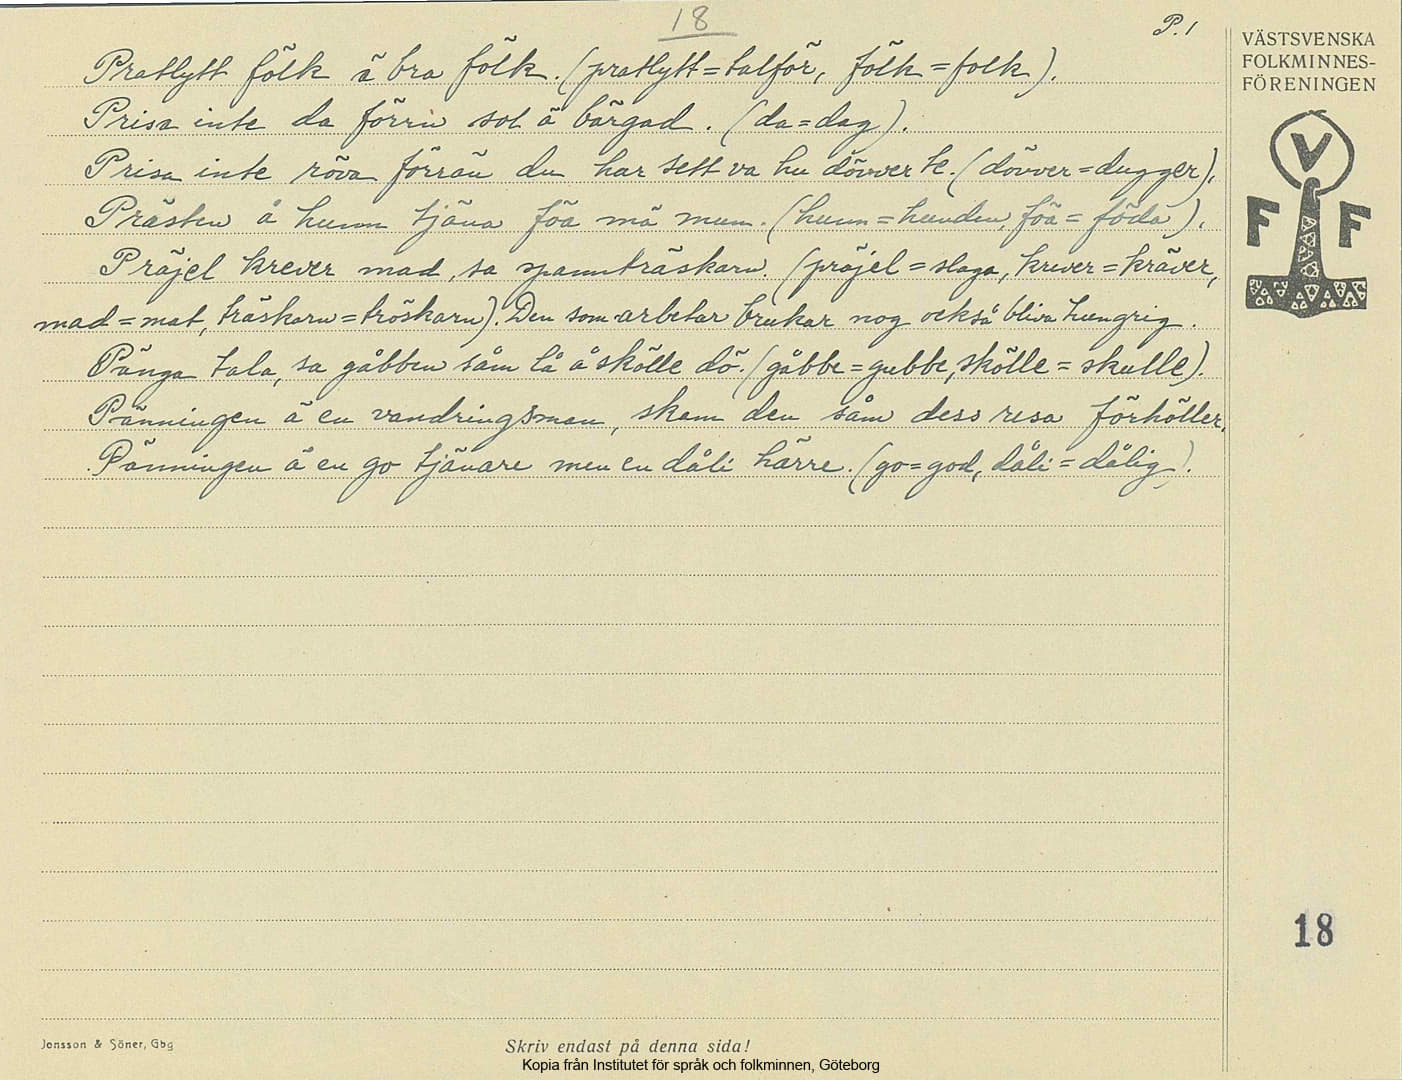 18
P. 1
Pratlytt fölk ä bra fölk. (pratlytt = talför, fölk = folk).
Prisa inte da förrin sol ä bärgad. (da = dag).
Prisa inte röva förrän du har sett va hu dövver te. (dövver = dugger).
Prästen å hunn tjäna föa mä mun. (hunn = hunden, föa = föda).
Präjel krever mad, sa spannträskarn. (präjel = slaga, krever = kräver,
mad = mat, träskarn = tröskarn). Den som arbetar brukar nog också bliva hungrig.
Pänga tala, sa gåbben såm lå å skölle dö. (gåbbe = gubbe, skölle = skulle).
Pänningen ä en vandringsman, skam den såm dess resa förhöller.
Pänningen ä en go tjänare men en dåli härre. (go = god, dåli = dålig).
VÄSTSVENSKA
FOLKMINNES-
FÖRENINGEN
V
F F
18
Jonsson & Söner, Gbg
Skriv endast på denna sida!
Kopia från Institutet för språk och folkminnen, Göteborg